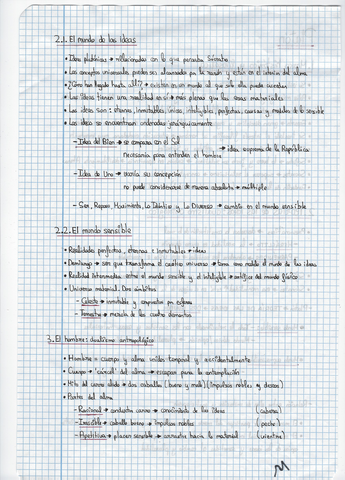 2.1. El mundo de las ideas
• Ideas platónicas → relacionadas con lo que pensaba Sócrates
• Los conceptos universales pueden ser alcanzados por la razón y están en el interior del alma
• ¿Cómo han llegado hasta allí? → existen en un mundo al que solo ella puede acceder
• Las ideas tienen una realidad en sí → más plena que las cosas materiales
• Las ideas son: eternas, inmutables, únicas, inteligibles, perfectas, causas y modelos de lo sensible
• Las ideas se encuentran ordenadas jerárquicamente
- Idea del Bien → se compara con el Sol
necesaria para entender el hombre
→ idea suprema de la República
- Idea de Uno → su concepción
no puede considerarse de manera absoluta → múltiple
- Ser, Reposo, Movimiento, Lo Idéntico y Lo Diverso → cambio en el mundo sensible
2.2. El mundo sensible
• Realidades perfectas, eternas e inmutables → ideas
• Demiurgo → ser que transforma el universo → toma como modelo el mundo de las ideas
• Realidad intermedia entre el mundo sensible y el inteligible → artífice del mundo físico
• Universo material. Dos ámbitos
- Celeste → inmutable y compuesto por esferas
- Terrestre → mezcla de los cuatro elementos
3. El hombre: dualismo antropológico
• Hombre = cuerpo y alma unidos temporal y accidentalmente
• Cuerpo → "cárcel" del alma → escapar para la contemplación
• Mito del carro alado → dos caballos (bueno y malo) (impulsos nobles y deseos)
• Partes del alma
- Racional → conductor carro → conocimiento de las ideas (cabeza)
- Irascible → caballo bueno → impulsos nobles (pecho)
- Apetitiva → placer sensible → hacia lo material (vientre)